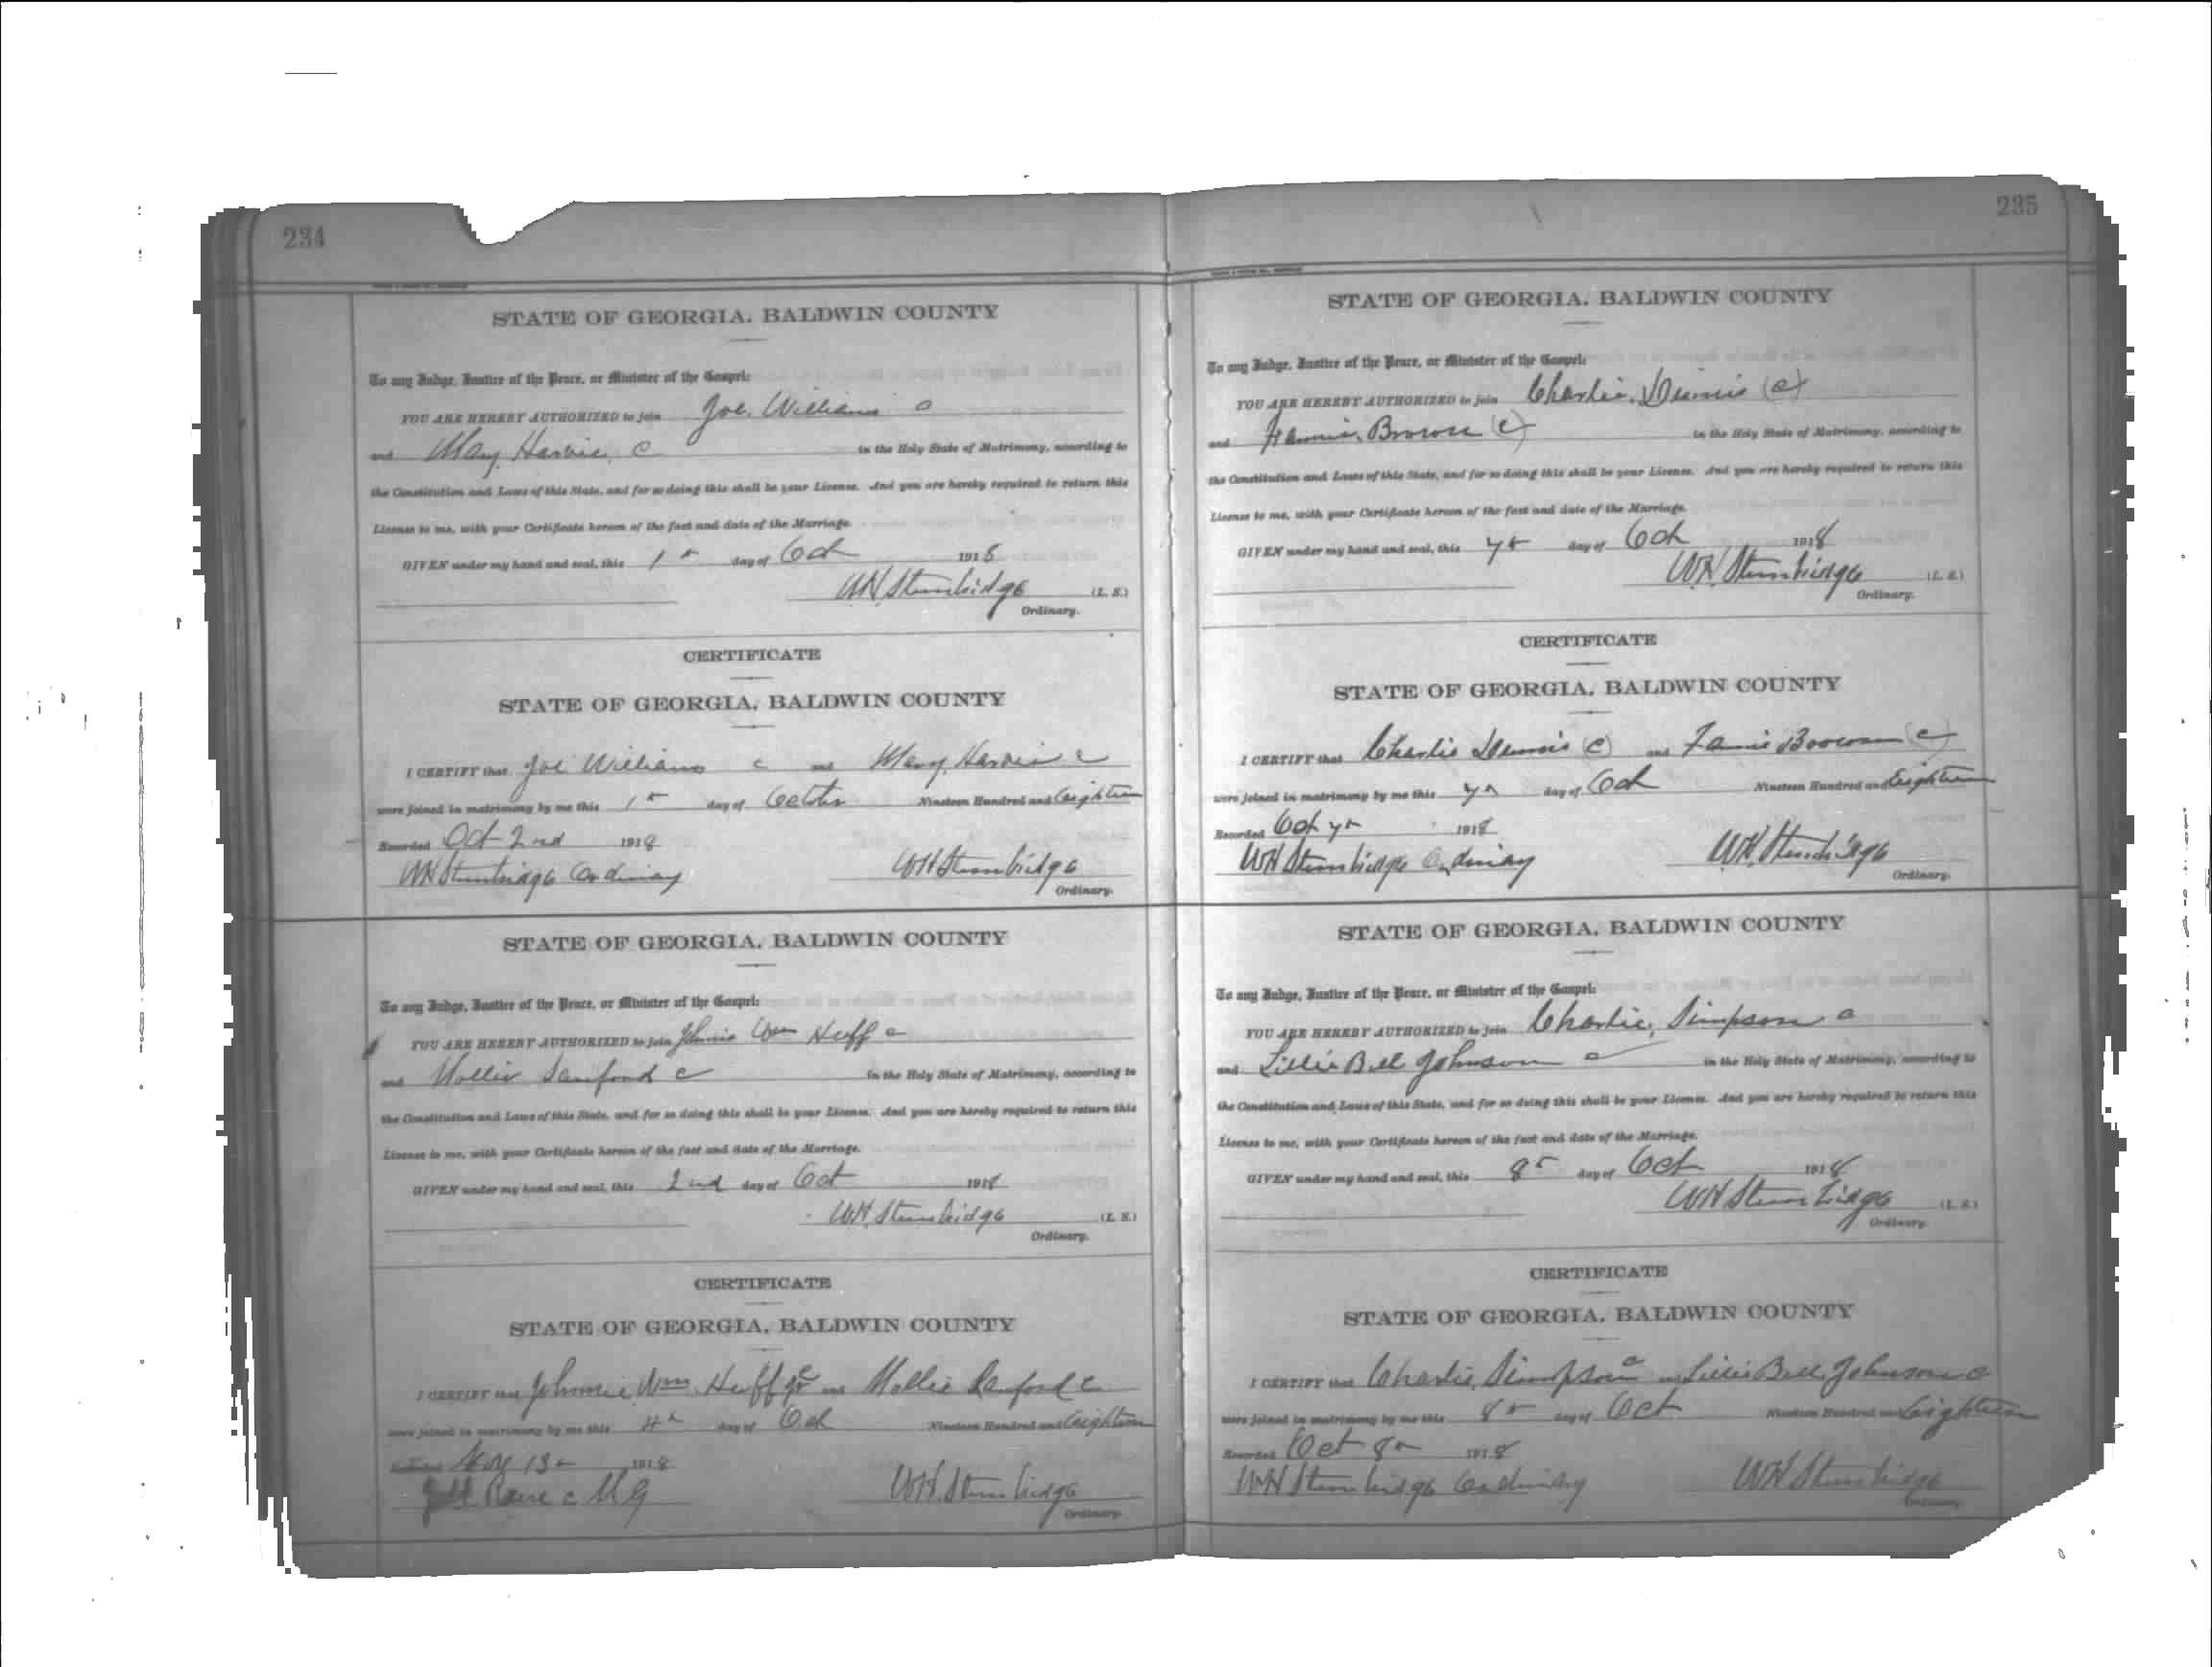 234
STATE OF GEORGIA. BALDWIN COUNTY
To any Judge, Justice of the Peace, or Minister of the Gospel:
YOU ARE HEREBY AUTHORIZED to join Joe. Williams c
and Mary c in the Holy State of Matrimony, according to
the Constitution and Laws of this State, and for so doing this shall be your License. And you are hereby required to return this
License to me, with your Certificate hereon of the fact and date of the Marriage.
GIVEN under my hand and seal, this 1st day of Oct 1918
WH Stembridge (L. S.)
Ordinary.
CERTIFICATE
STATE OF GEORGIA, BALDWIN COUNTY
I CERTIFY that Joe Williams c and Mary c
were joined in matrimony by me this 1st day of October Nineteen Hundred and Eighteen
Recorded Oct 2nd 1918
WH Stembridge Ordinary WH Stembridge
Ordinary.
STATE OF GEORGIA. BALDWIN COUNTY
To any Judge, Justice of the Peace, or Minister of the Gospel:
YOU ARE HEREBY AUTHORIZED to join Johnnie Wm Huff c
and Mollie Sanford c in the Holy State of Matrimony, according to
the Constitution and Laws of this State, and for so doing this shall be your License. And you are hereby required to return this
License to me, with your Certificate hereon of the fact and date of the Marriage.
GIVEN under my hand and seal, this 2nd day of Oct 1918
WH Stembridge (L. S.)
Ordinary.
CERTIFICATE
STATE OF GEORGIA, BALDWIN COUNTY
I CERTIFY that Johnnie Wm. Huff Jr c and Mollie Sanford c
were joined in matrimony by me this 4th day of Oct Nineteen Hundred and Eighteen
13th 1918
c M G WH Stembridge
Ordinary.
235
STATE OF GEORGIA. BALDWIN COUNTY
To any Judge, Justice of the Peace, or Minister of the Gospel:
YOU ARE HEREBY AUTHORIZED to join Charlie Dennis (c)
and Fannie Brown (c) in the Holy State of Matrimony, according to
the Constitution and Laws of this State, and for so doing this shall be your License. And you are hereby required to return this
License to me, with your Certificate hereon of the fact and date of the Marriage.
GIVEN under my hand and seal, this 7th day of Oct 1918
WH Stembridge (L. S.)
Ordinary.
CERTIFICATE
STATE OF GEORGIA, BALDWIN COUNTY
I CERTIFY that Charlie Dennis (c) and Fannie Brown (c)
were joined in matrimony by me this 7th day of Oct Nineteen Hundred and Eighteen
Recorded Oct 7th 1918
WH Stembridge Ordinary WH Stembridge
Ordinary.
STATE OF GEORGIA. BALDWIN COUNTY
To any Judge, Justice of the Peace, or Minister of the Gospel:
YOU ARE HEREBY AUTHORIZED to join Charlie Simpson c
and Lillie Bell Johnson c in the Holy State of Matrimony, according to
the Constitution and Laws of this State, and for so doing this shall be your License. And you are hereby required to return this
License to me, with your Certificate hereon of the fact and date of the Marriage.
GIVEN under my hand and seal, this 8th day of Oct 1918
WH Stembridge (L. S.)
Ordinary.
CERTIFICATE
STATE OF GEORGIA, BALDWIN COUNTY
I CERTIFY that Charlie Simpson c and Lillie Bell Johnson c
were joined in matrimony by me this 8th day of Oct Nineteen Hundred and Eighteen
Recorded Oct 8th 1918
WH Stembridge Ordinary WH Stembridge
Ordinary.